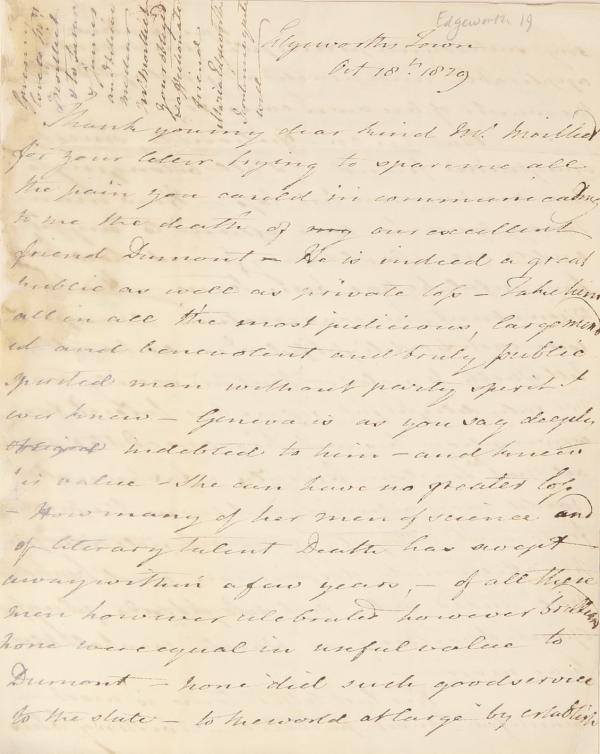 Edgeworth 19
Edgeworths Town
Oct 18th 1829
Thank you my dear kind Mr. Moilliet
for your letter trying to spare me all
the pain you could in communicating
to me the death of my our excellent
friend Dumont – He is indeed a great
public as well as private loss – Take him
all in all the most judicious, large mind
ed and benevolent and truly public
spirited man without party spirit I
ever knew – Geneva is as you say deeply
indebted to him – and knew
his value – She can have no greater loss
– How many of her men of science and
of literary talent Death has swept
away within a few years, – of all these
men however celebrated however brilliant
none were equal in useful value to
Dumont – none did such good service
to the state – to the world at large by establish
Mr Moilliet
your obliged
& affectionate
friend
Maria Edgeworth